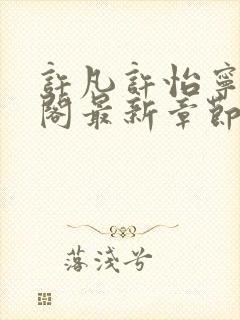 許凡許怡寧
閣最新章節
落淺兮